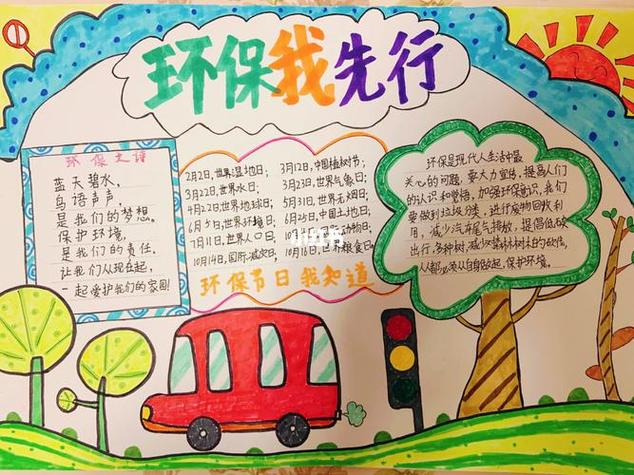 环保我先行
环保之诗
蓝天碧水,
鸟语声声,
是我们的梦想。
保护环境,
是我们的责任。
让我们从现在起,
一起爱护我们的家园!
2月2日,世界湿地日;
3月22日,世界水日;
4月22日,世界地球日;
6月5日,世界环境日;
7月11日,世界人口日;
10月14日,国际减灾日;
3月12日,中国植树节;
3月23日,世界气象日;
5月31日,世界无烟日;
6月25日,中国土地日;
10月4日,动物日;
10月16日,世界粮食日。
环保节日我知道
环保是现代人生活中最
关心的问题,要大力宣传,提高人们
的认识和觉悟,加强环保意识,我们
要做到垃圾分类,进行废物回收利
用,减少汽车尾气排放,提倡低碳
出行,多种树,减少森林的砍伐,
人人都必须从自身做起,保护环境。